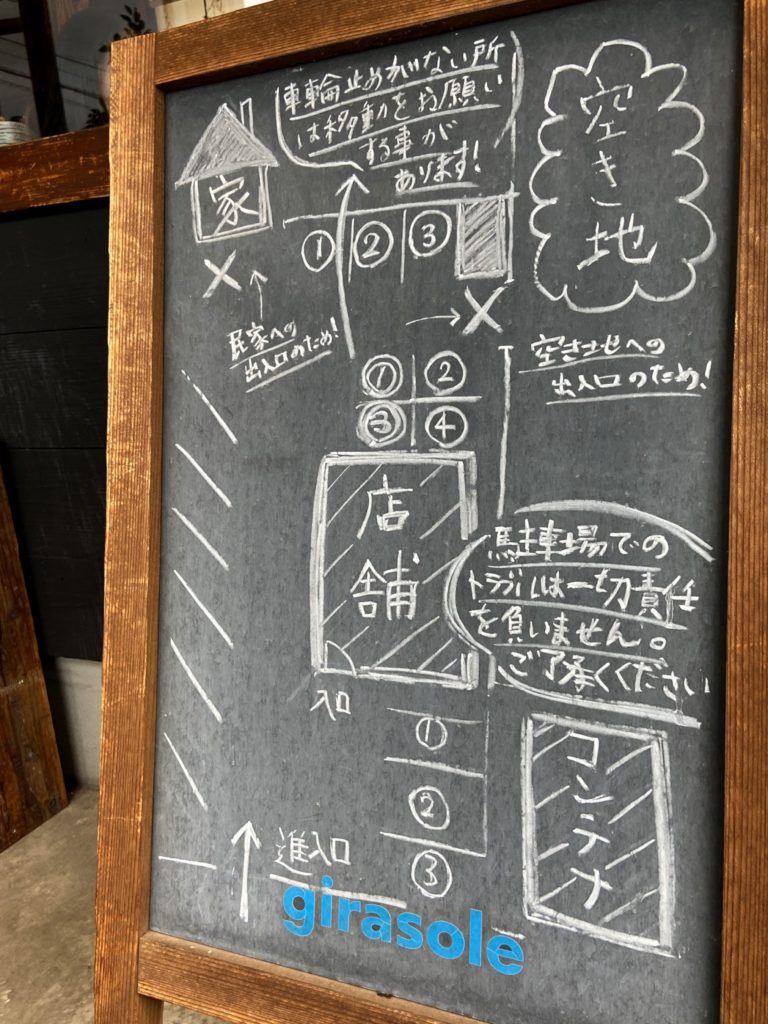 車輪止めがない所
は移動をお願い
する事が
あります!
空き地
家
① ② ③
×
×
民家への
出入口のため!
空き地への
出入口のため!
① ②
③ ④
店舗
駐車場での
トラブルは一切責任
を負いません。
ご了承くください
入口
①
②
③
コンテナ
進入口
girasole